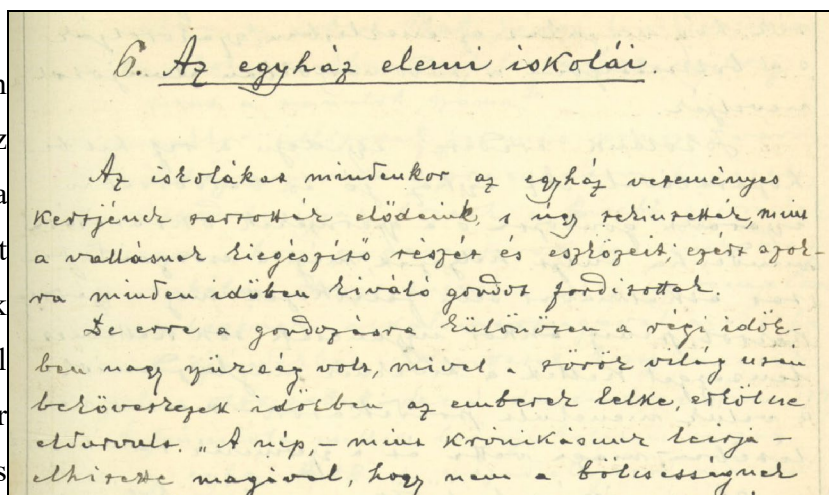 6. Az egyház elemi iskolái.
n
z
a
t
k
l
r
s
Az iskolákat mindenkor az egyház veteményes
kertjének tartották elődeink, s úgy tekintették, mint
a vallásnak kiegészítő részét és eszközeit; ezért azok-
ra minden időben kiváló gondot fordítottak.
De erre a gondozásra különösen a régi idők-
ben nagy szükség volt, mivel a török világ után
bekövetkezett időkben az emberek lelke, erkölcse
eldurvult. „A nép, – mint krónikásunk leírja –
elhitette magával, hogy nem a bölcsességnek